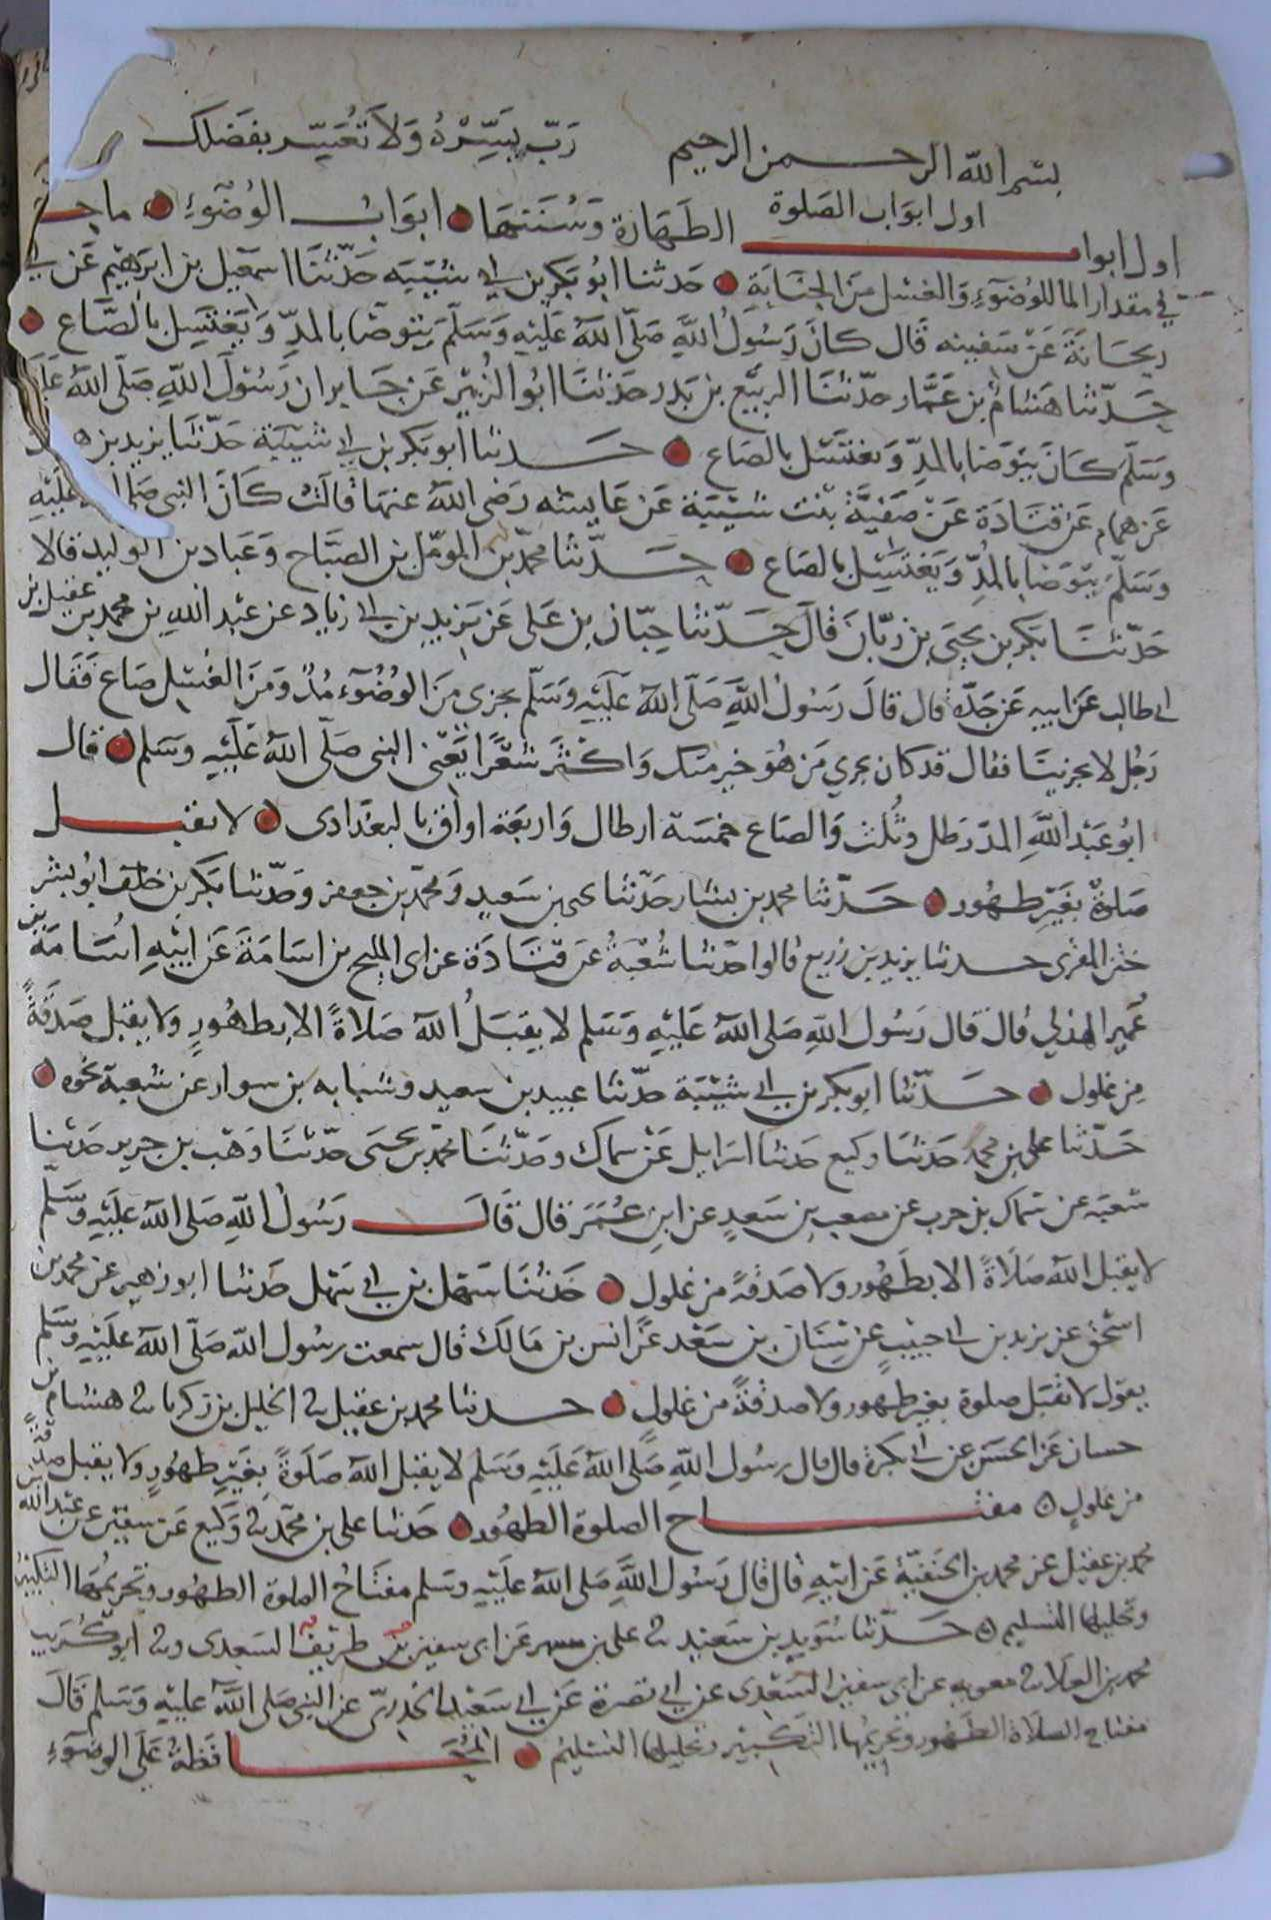 بسم الله الرحمن الرحيم رب يسره ولا تعسر بفضلك
اول ابواب الصلوة
اول ابواب الطهارة وسننها ابواب الوضوء ما جـ
في مقدار الما للوضوء والغسل من الجنابة حدثنا ابو بكر بن ابي شيبة حدثنا اسمعيل بن ابرهيم عن ابي
ريحانة عن سفينه قال كان رسول الله صلى الله عليه وسلم يتوضا بالمد ويغتسل بالصاع
حدثنا هشام بن عمار حدثنا الربيع بن بدر حدثنا ابو الزبير عن جابر ان رسول الله صلى الله عليه
وسلم كان يتوضا بالمد ويغتسل بالصاع حدثنا ابو بكر بن ابي شيبة حدثنا يزيد بن
عن همام عن قتادة عن صفية بنت شيبة عن عايشه رضى الله عنها قالت كان النبى صلى الله عليه
وسلم يتوضا بالمد ويغتسل بالصاع حدثنا محمد بن المومل بن الصباح وعباد بن الوليد قالا
حدثنا بكر بن يحيى بن زبان قال حدثنا حبان بن على عن يزيد بن ابي زياد عن عبد الله بن محمد بن عقيل بن
ابي طالب عن ابيه عن جده قال قال رسول الله صلى الله عليه وسلم يجزى من الوضوء مد ومن الغسل صاع فقال
رجل لا يجزينا فقال قد كان يجزي من هو خير منك واكثر شعرا يعنى النبى صلى الله عليه وسلم قال
ابو عبد الله المد رطل وثلث والصاع خمسة ارطال واربعة اواق بالبغدادى لا يقبل
صلوة بغير طهور حدثنا محمد بن بشار حدثنا يحيى بن سعيد ومحمد بن جعفر وحدثنا بكر بن خلف ابو بشر
ختن المقرى حدثنا يزيد بن زريع قالوا حدثنا شعبة عن قتادة عن ابى المليح بن اسامة عن ابيه اسامة بن
عمير الهذلي قال قال رسول الله صلى الله عليه وسلم لا يقبل الله صلاة الا بطهور ولا يقبل صدقة
من غلول حدثنا ابو بكر بن ابي شيبة حدثنا عبيد بن سعيد وشبابه بن سوار عن شعبة نحوه
حدثنا على بن محمد حدثنا وكيع حدثنا اسرايل عن سماك وحدثنا محمد بن يحيى حدثنا وهب بن جرير حدثنا
شعبه عن سماك بن حرب عن مصعب بن سعد عن ابن عمر قال قال رسول الله صلى الله عليه وسلم
لا يقبل الله صلاة الا بطهور ولا صدقة من غلول حدثنا سهل بن ابي سهل حدثنا ابو زهير عن محمد بن
اسحق عن يزيد بن ابي حبيب عن سنان بن سعد عن انس بن مالك قال سمعت رسول الله صلى الله عليه وسلم
يقول لا تقبل صلوة بغير طهور ولا صدقة من غلول حدثنا محمد بن عقيل ثنا الخليل بن زكريا ثنا هشام بن
حسان عن الحسن عن ابي بكرة قال قال رسول الله صلى الله عليه وسلم لا يقبل الله صلوة بغير طهور ولا يقبل صدقة
من غلول مفتاح الصلوة الطهور حدثنا على بن محمد ثنا وكيع عن سفين عن عبد الله بن
محمد بن عقيل عن محمد بن الحنفية عن ابيه قال قال رسول الله صلى الله عليه وسلم مفتاح الصلوة الطهور وتحريمها التكبير
وتحليلها التسليم حدثنا سويد بن سعيد ثنا على بن مسهر عن ابى سفين طريف السعدى وثنا ابو كريب
محمد بن العلا ثنا معويه عن ابى سفين السعدى عن ابي نضرة عن ابي سعيد الخدرى عن النبى صلى الله عليه وسلم قال
مفتاح الصلاة الطهور وتحريمها التكبير وتحليلها التسليم المحافظة على الوضوء